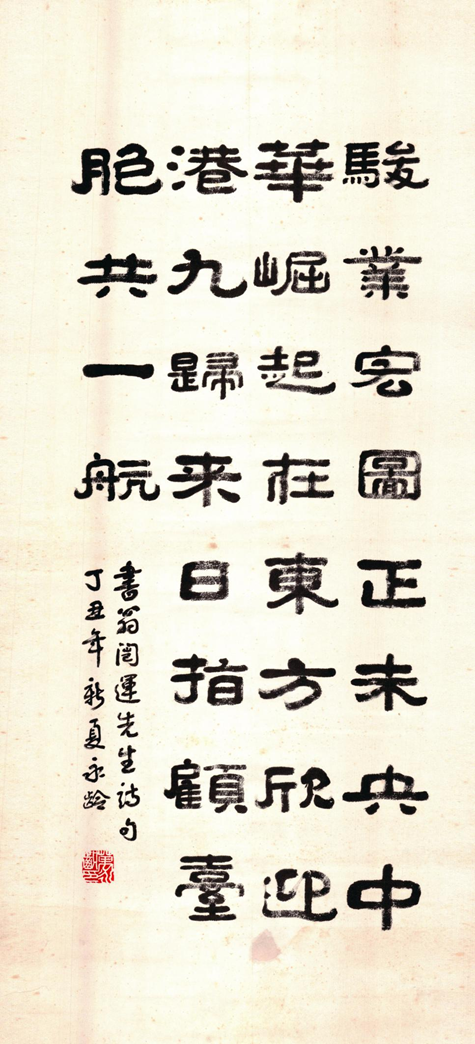 駿業宏圖正未央中
華崛起在東方欣迎
港九歸来日指顧臺
胞共一航
書翁闓運先生詩句
丁丑年新夏永龄